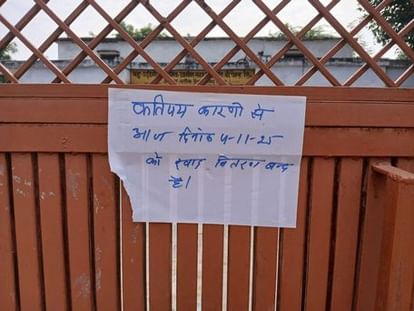 कतिपय कारणो से
आज दिनांक 4-11-25
को खाद वितरण बन्द
है।